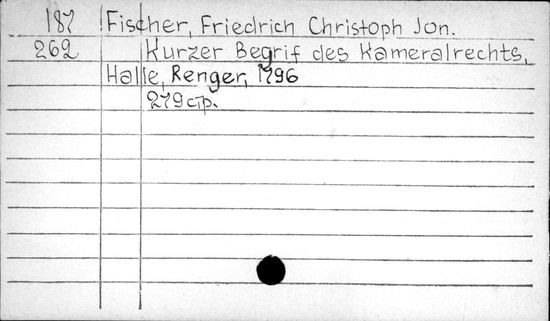 187 Fischer, Friedrich Christoph Jon.
262 Kurzer Begrif des Kameralrechts,
Halle, Renger, 1796
279 стр.